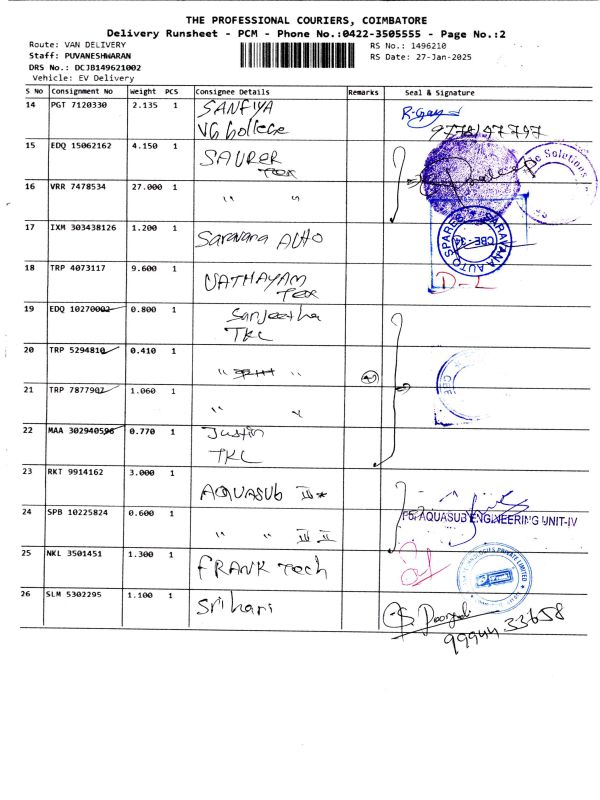 THE PROFESSIONAL COURIERS, COIMBATORE
Delivery Runsheet - PCM - Phone No.:0422-3505555 - Page No.:2
Route: VAN DELIVERY
RS No.: 1496210
Staff: PUVANESHWARAN
RS Date: 27-Jan-2025
DRS No.: DCJB149621002
Vehicle: EV Delivery
S No Consignment No Weight PCS Consignee Details Remarks Seal & Signature
14 PGT 7120330 2.135 1 SANFIYA
VG College
15 EDQ 15062162 4.150 1 SAURER
TEX
16 VRR 7478534 27.000 1 " "
17 IXM 303438126 1.200 1 Saravana AUTO
SARAVANA AUTO SPARES
CBE - 34
18 TRP 4073117 9.600 1 VATHAYAM
TEX
D-L
19 EDQ 10270002 0.800 1 Sanjeetha
TKL
20 TRP 5294810 0.410 1 " "
21 TRP 7877907 1.060 1 " "
22 MAA 302940596 0.770 1 Justin
TKL
23 RKT 9914162 3.000 1 AQUASUB II *
24 SPB 10225824 0.600 1 " " III II
AQUASUB ENGINEERING UNIT-IV
25 NKL 3501451 1.300 1 FRANK Tech
26 SLM 5302295 1.100 1 Sri hari
99944 33658